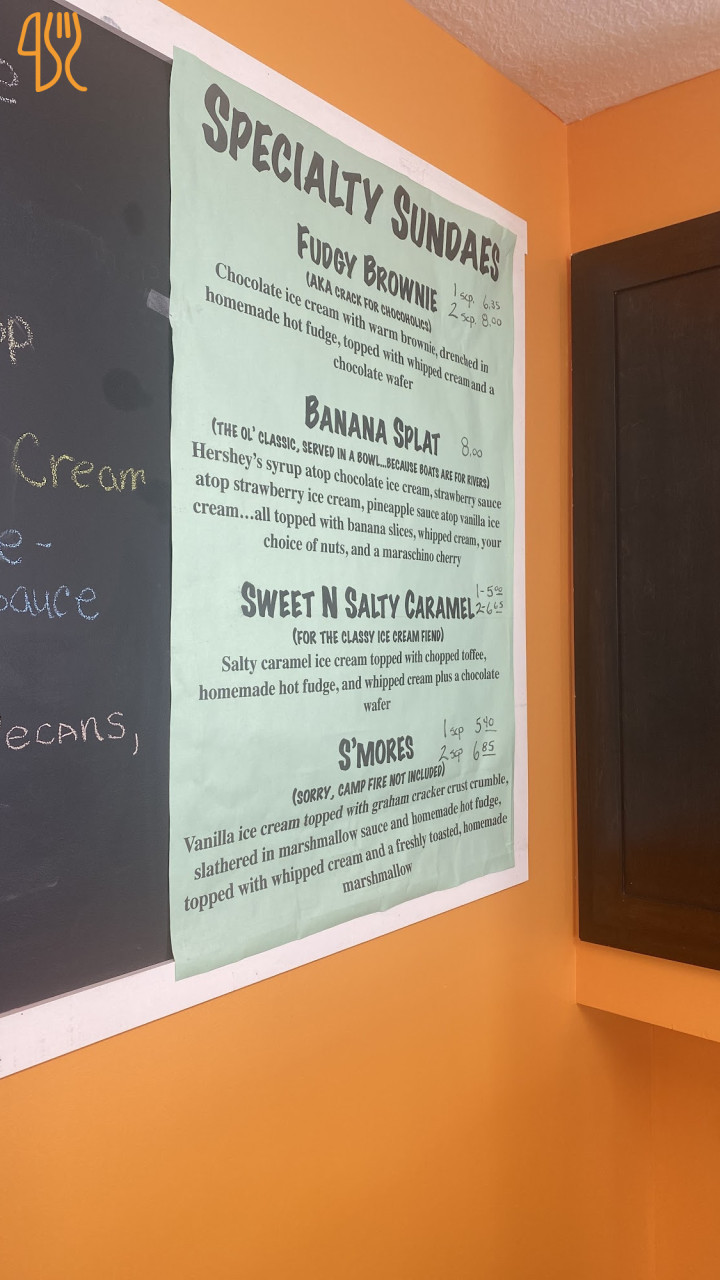 SPECIALTY SUNDAES
FUDGY BROWNIE
1 scp. 6.35
(AKA CRACK FOR CHOCOHOLICS)
2 scp. 8.00
Chocolate ice cream with warm brownie, drenched in
homemade hot fudge, topped with whipped cream and a
chocolate wafer
BANANA SPLAT 8.00
(THE OL' CLASSIC, SERVED IN A BOWL...BECAUSE BOATS ARE FOR RIVERS)
Hershey's syrup atop chocolate ice cream, strawberry sauce
atop strawberry ice cream, pineapple sauce atop vanilla ice
cream...all topped with banana slices, whipped cream, your
choice of nuts, and a maraschino cherry
SWEET N SALTY CARAMEL 1-5.00
2-6.65
(FOR THE CLASSY ICE CREAM FIEND)
Salty caramel ice cream topped with chopped toffee,
homemade hot fudge, and whipped cream plus a chocolate
wafer
S'MORES 1 scp 5.40
2 scp 6.85
(SORRY, CAMP FIRE NOT INCLUDED)
Vanilla ice cream topped with graham cracker crust crumble,
slathered in marshmallow sauce and homemade hot fudge,
topped with whipped cream and a freshly toasted, homemade
marshmallow
Cream
e-
sauce
ecans,